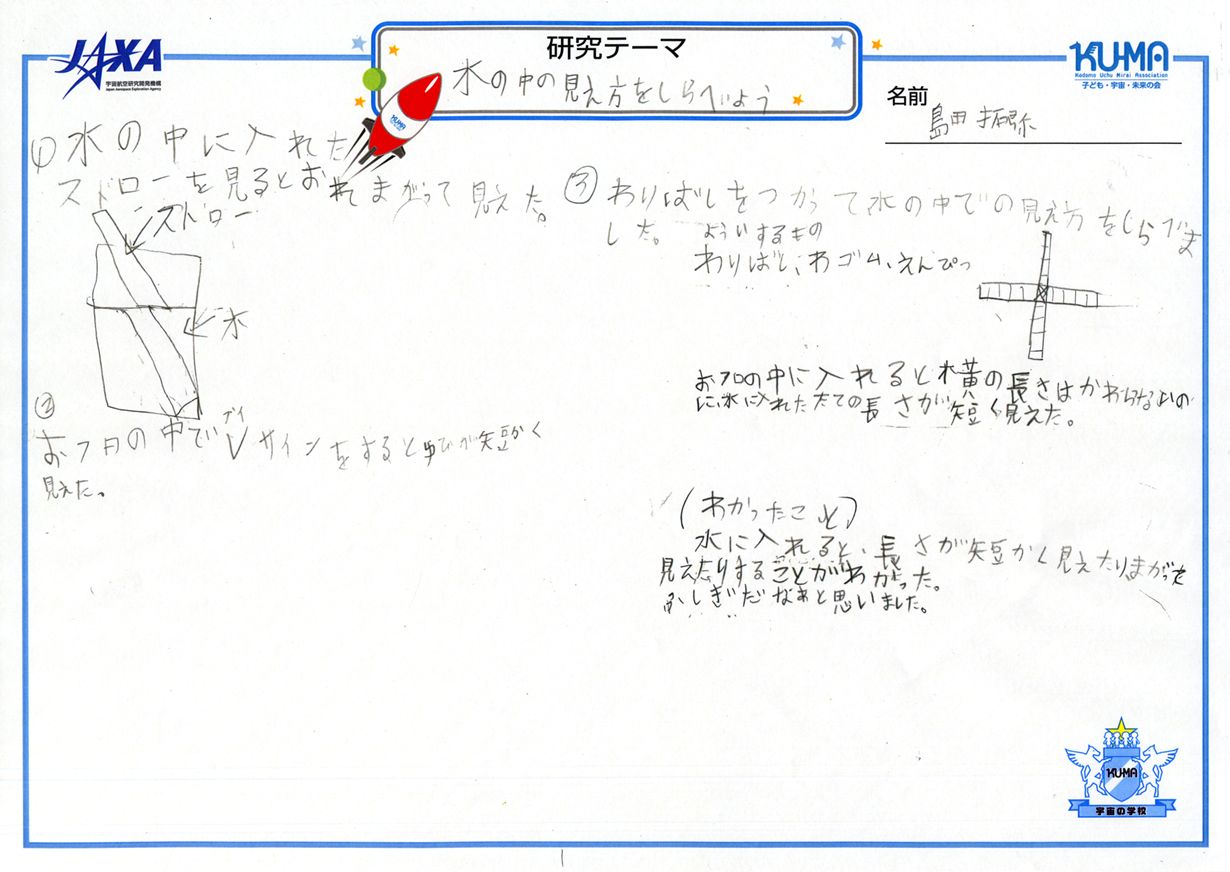 JAXA
宇宙航空研究開発機構
Japan Aerospace Exploration Agency
研究テーマ
水の中の見え方をしらべよう
KUMA
Kodomo Uchu Mirai Association
子ども・宇宙・未来の会
名前
島田 拓弥
KUMA
① 水の中に入れた
ストローを見るとおれまがって見えた。
ストロー
水
②
おフロの中でVサインをするとゆびが短かく
ブイ
見えた。
③ わりばしをつかって水の中での見え方をしらべま
した。
よういするもの
わりばし、わゴム、えんぴつ
おフロの中に入れると横の長さはかわらないの
に、水に入れたたての長さが短く見えた。
(わかったこと)
水に入れると、長さが短かく見えたり、まがって
見えたりすることがわかった。
ふしぎだなぁと思いました。
KUMA
宇宙の学校